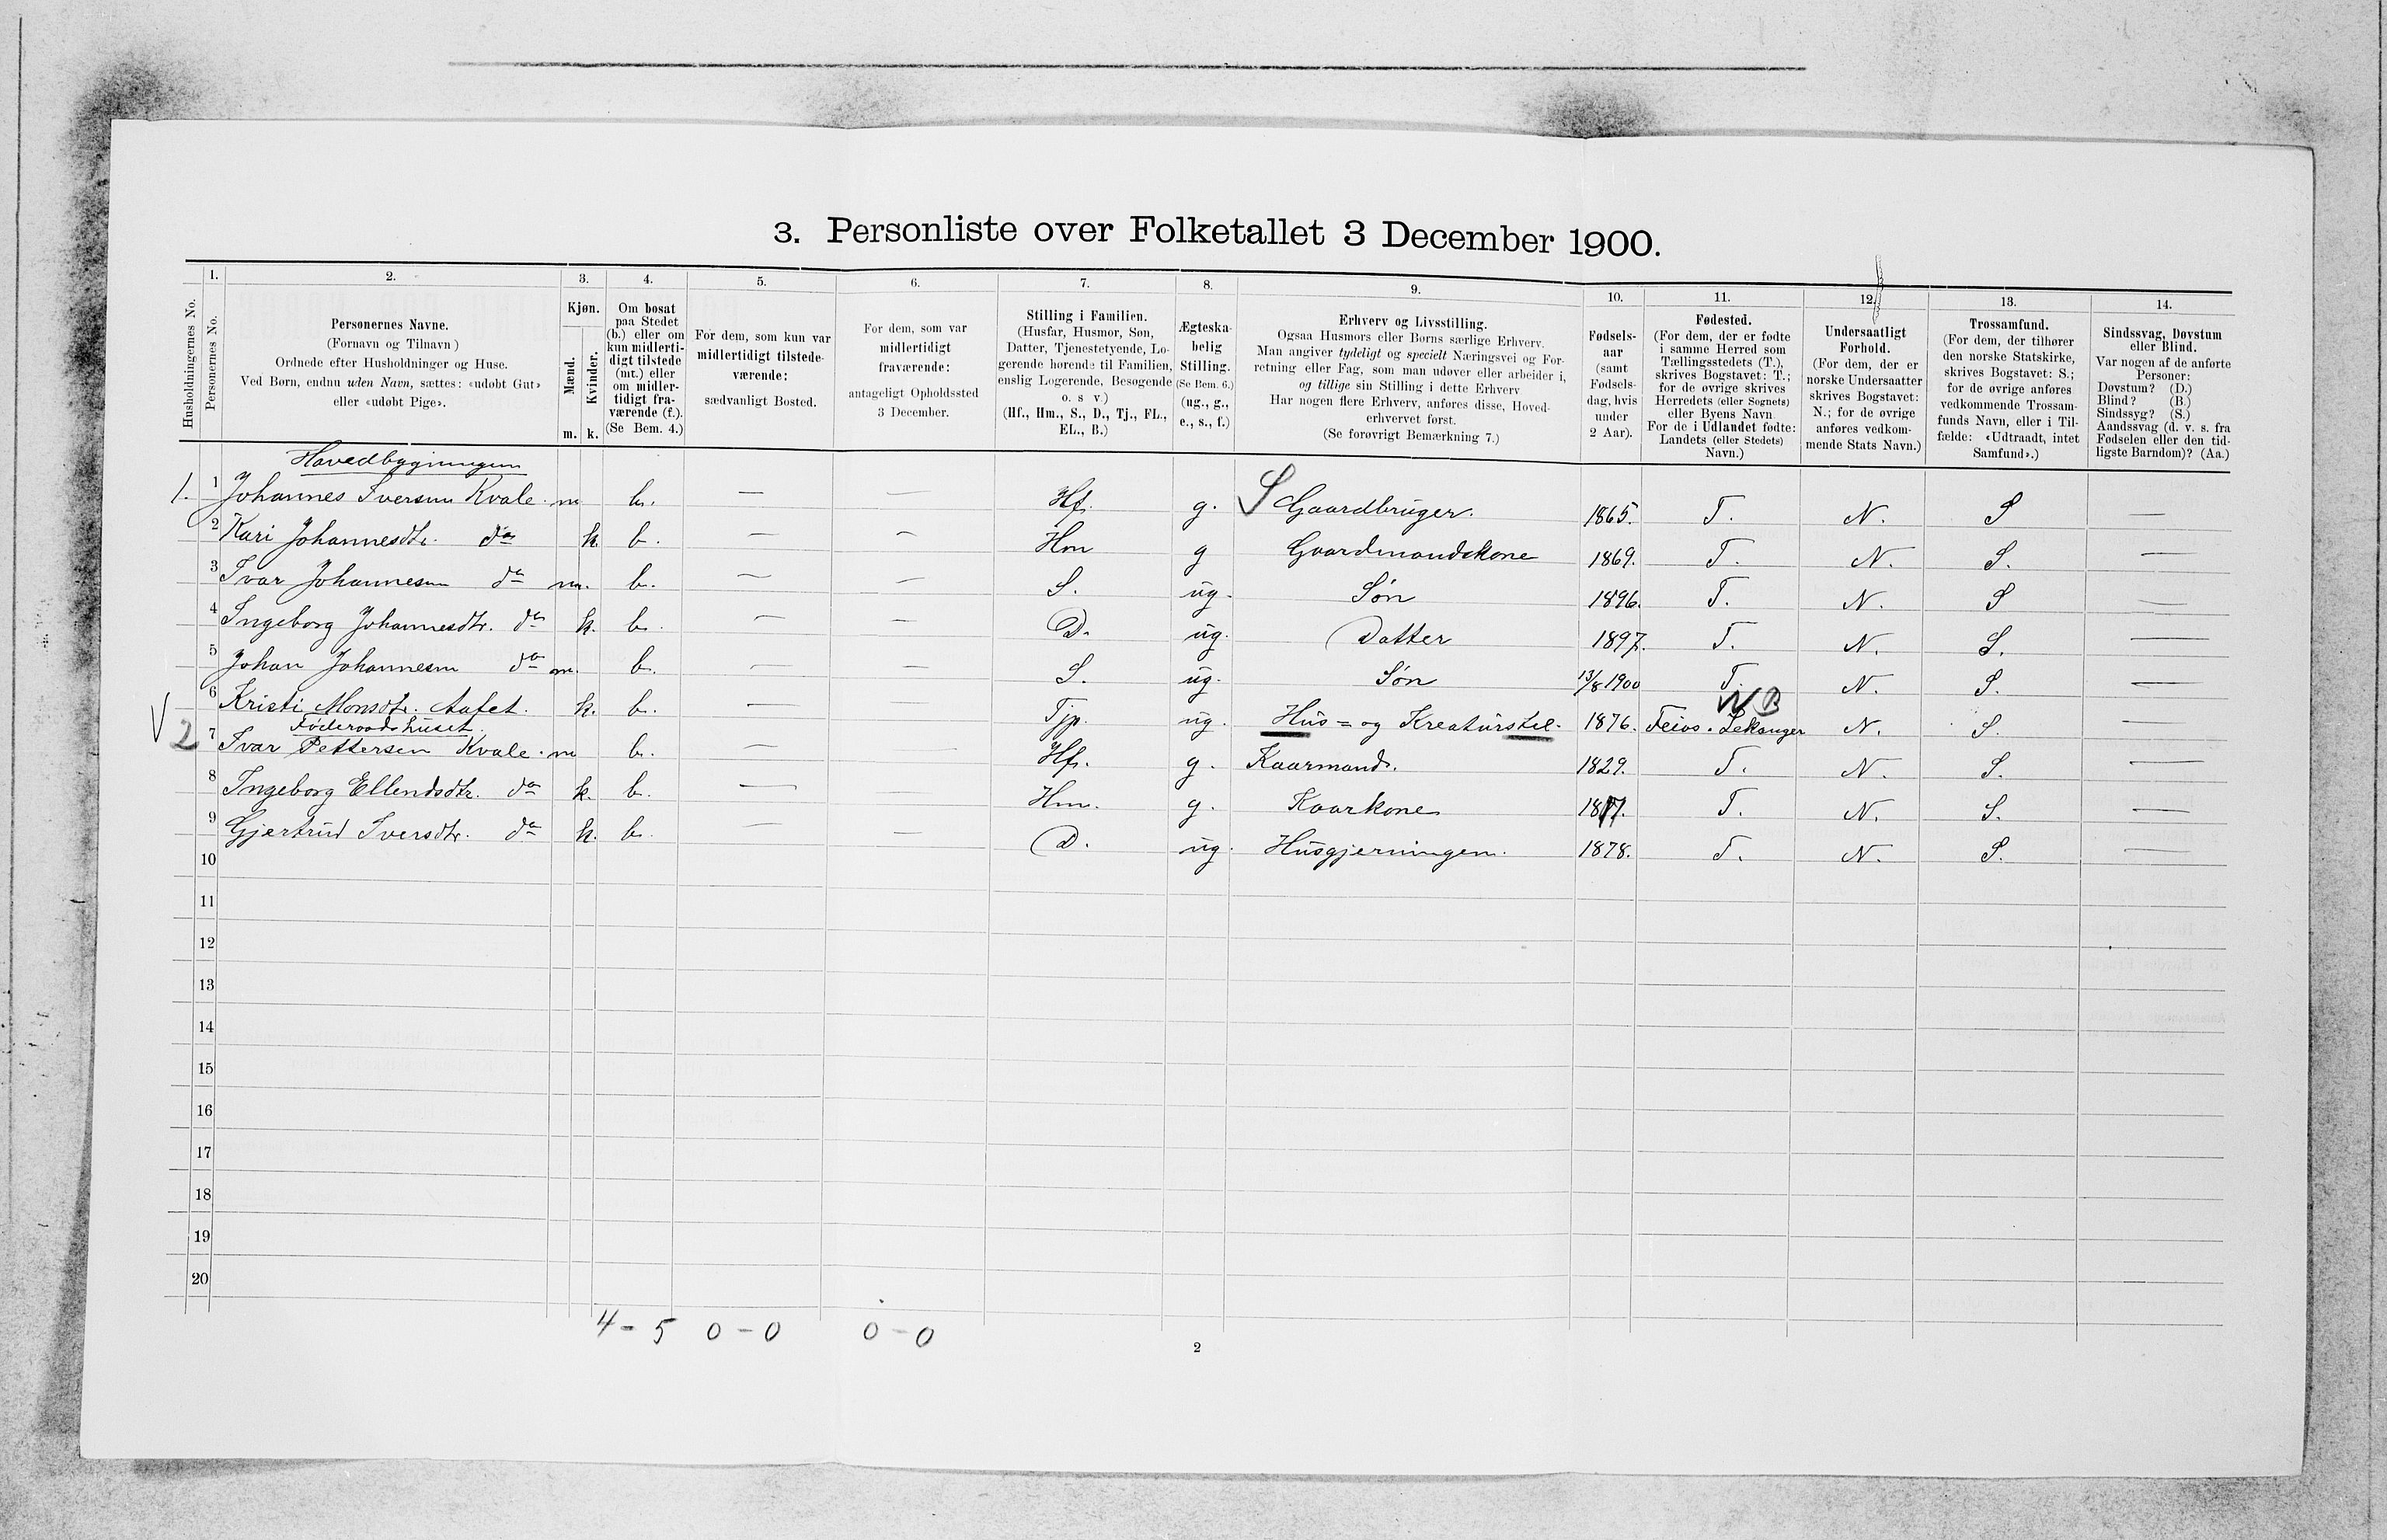 3. Personliste over Folketallet 3 December 1900.
1. 2. 3. 4. 5. 6. 7. 8. 9. 10. 11. 12. 13. 14.
Husholdningernes No.
Personernes No.
Personernes Navne.
(Fornavn og Tilnavn)
Ordnede efter Husholdninger og Huse.
Ved Børn, endnu uden Navn, sættes: «udøbt Gut»
eller «udøbt Pige».
Kjøn.
Mænd.
Kvinder.
m. k.
Om bosat
paa Stedet
(b.) eller om
kun midlerti-
digt tilstede
(mt.) eller
om midler-
tidigt fra-
værende (f.).
(Se Bem. 4.)
For dem, som kun var
midlertidigt tilstede-
værende:
sædvanligt Bosted.
For dem, som var
midlertidigt
fraværende:
antageligt Opholdssted
3 December.
Stilling i Familien.
(Husfar, Husmor, Søn,
Datter, Tjenestetyende, Lo-
gerende hørende til Familien,
enslig Logerende, Besøgende
o. s v.)
(Hf., Hm., S., D., Tj., FL.,
EL., B.)
Ægteska-
belig
Stilling.
(Se Bem. 6.)
(ug., g.,
e., s., f.)
Erhverv og Livsstilling.
Ogsaa Husmors eller Børns særlige Erhverv.
Man angiver tydeligt og specielt Næringsvei og For-
retning eller Fag, som man udøver eller arbeider i,
og tillige sin Stilling i dette Erhverv
Har nogen flere Erhverv, anføres disse, Hoved-
erhvervet først.
(Se forøvrigt Bemærkning 7.)
Fødsels-
aar
(samt
Fødsels-
dag, hvis
under
2 Aar).
Fødested.
(For dem, der er fødte
i samme Herred som
Tællingsstedets (T.),
skrives Bogstavet: T.;
for de øvrige skrives
Herredets (eller Sognets)
eller Byens Navn
For de i Udlandet fødte:
Landets (eller Stedets)
Navn.)
Undersaatligt
Forhold.
(For dem, der er
norske Undersaatter
skrives Bogstavet:
N.; for de øvrige
anføres vedkom-
mende Stats Navn.)
Trossamfund.
(For dem, der tilhører
den norske Statskirke,
skrives Bogstavet: S.;
for de øvrige anføres
vedkommende Trossam-
funds Navn, eller i Til-
fælde: «Udtraadt, intet
Samfund».)
Sindssvag, Døvstum
eller Blind.
Var nogen af de anførte
Personer:
Døvstum? (D.)
Blind? (B.)
Sindssyg? (S.)
Aandssvag (d. v. s. fra
Fødselen eller den tid-
ligste Barndom)? (Aa.)
Hovedbygningen
1. 1 Johannes Iversen Kvale. m b. — — Hf. g. S Gaardbruger. 1865. T. N. S —
2 Kari Johannesdtr. do k. b. — — Hm g Gaardmandskone 1869. T. N. S. —
3 Ivar Johannesen do m. b. — — S. ug. Søn 1896. T. N. S —
4 Ingeborg Johannesdtr. do k. b. — — D. ug. Datter 1897. T. N. S. —
5 Johan Johannesen do m. b. — — S. ug. Søn 13/8 1900 T. N. S. —
6 Kristi Monsdtr. Aafet. k. b. — Tjp. ug. Hus= og Kreaturstel. 1876. Feios. Lekanger N. S. —
Føderaadshuset
2 7 Ivar Pettersen Kvale. m b. — — Hf. g. Kaarmand. 1829. T. N. S. —
8 Ingeborg Ellendsdtr. do k. b. — — Hm. g. Kaarkone T. N. S. —
9 Gjertrud Iversdtr. do k. b. — — D. ug. Husgjerningen. 1878. T. N. S. —
10
11
12
13
14
15
16
17
18
19
20
4 - 5 0 - 0 0 - 0
2